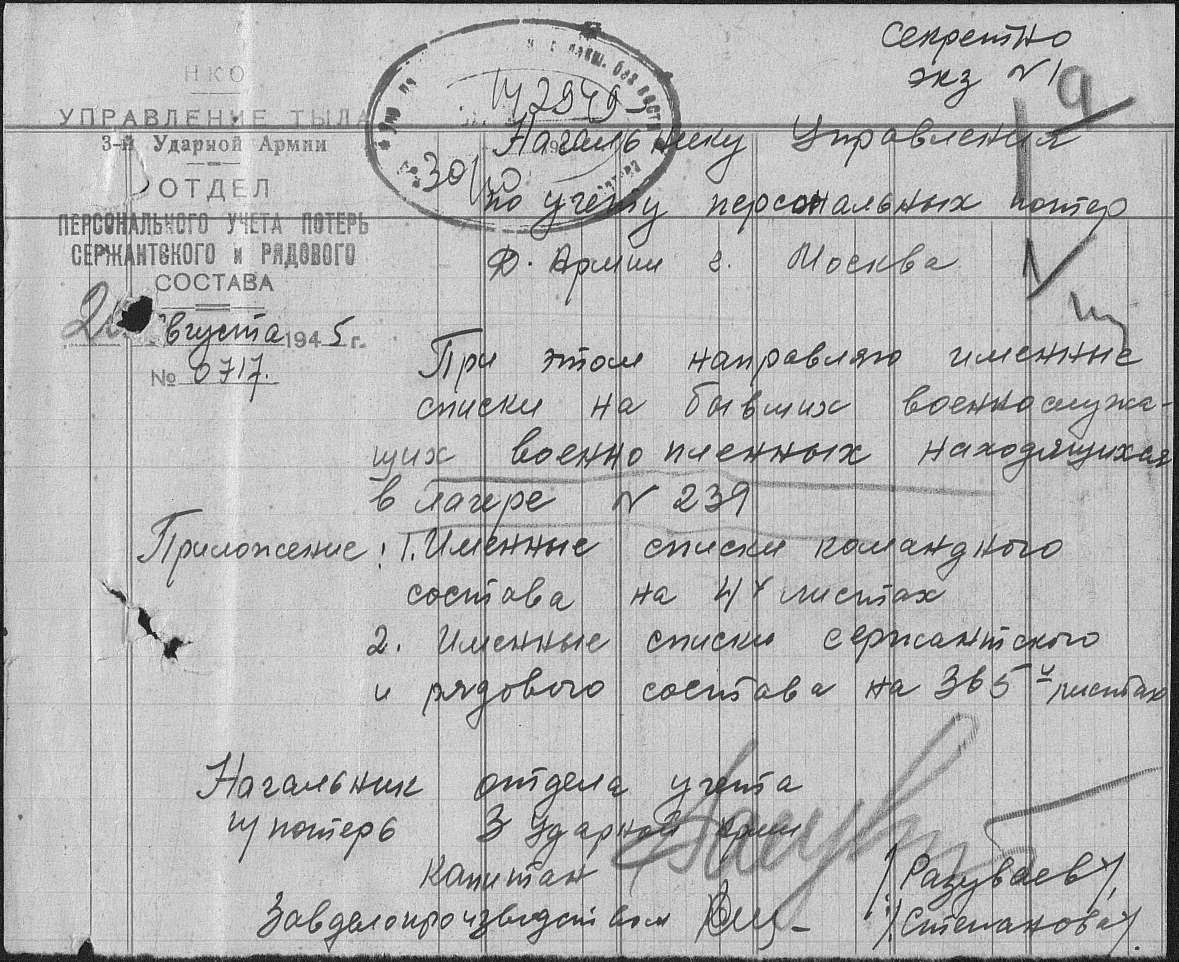 Секретно
экз № 1
НКО
УПРАВЛЕНИЕ ТЫЛА
3-й Ударной Армии
ОТДЕЛ
ПЕРСОНАЛЬНОГО УЧЕТА ПОТЕРЬ
СЕРЖАНТСКОГО и РЯДОВОГО
СОСТАВА
августа 1945 г.
№ 0717.
Начальнику Управления
по учету персональных потер
Армии г. Москва
При этом направляю именные
списки на бывших военнослужа-
щих военнопленных находящихся
в лагере № 239
Приложение: 1. Именные списки командного
состава на 4х листах
2. Именные списки сержантского
и рядового состава на 365и листах
Начальник отдела учета
п/потерь 3 Ударной Армии
Капитан /Разуваев/
Завделопроизводством /Степанова/.